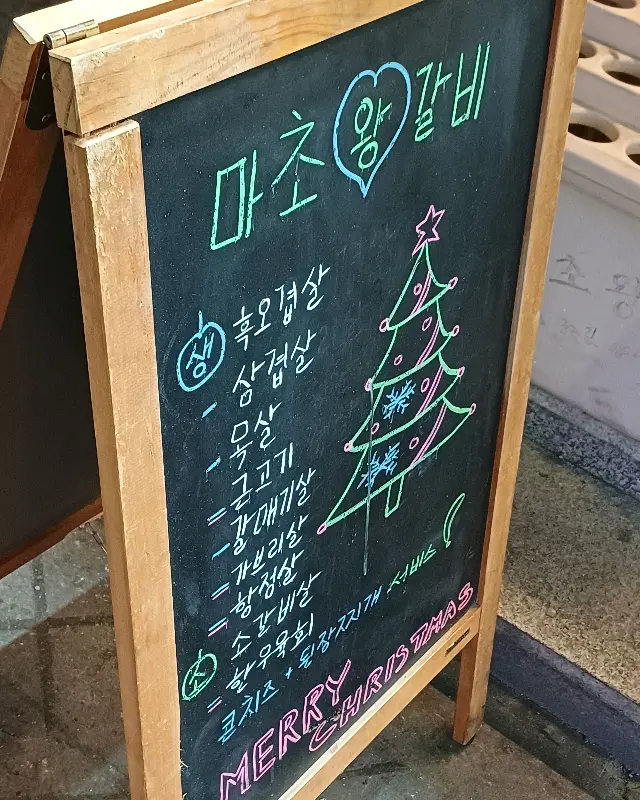 마초왕갈비
생 흑오겹살
- 삼겹살
- 목살
= 근고기
- 갈매기살
= 가브리살
= 항정살
소 소갈비살
= 한우육회
콘치즈 + 된장찌개 서비스
MERRY
CHRISTMAS